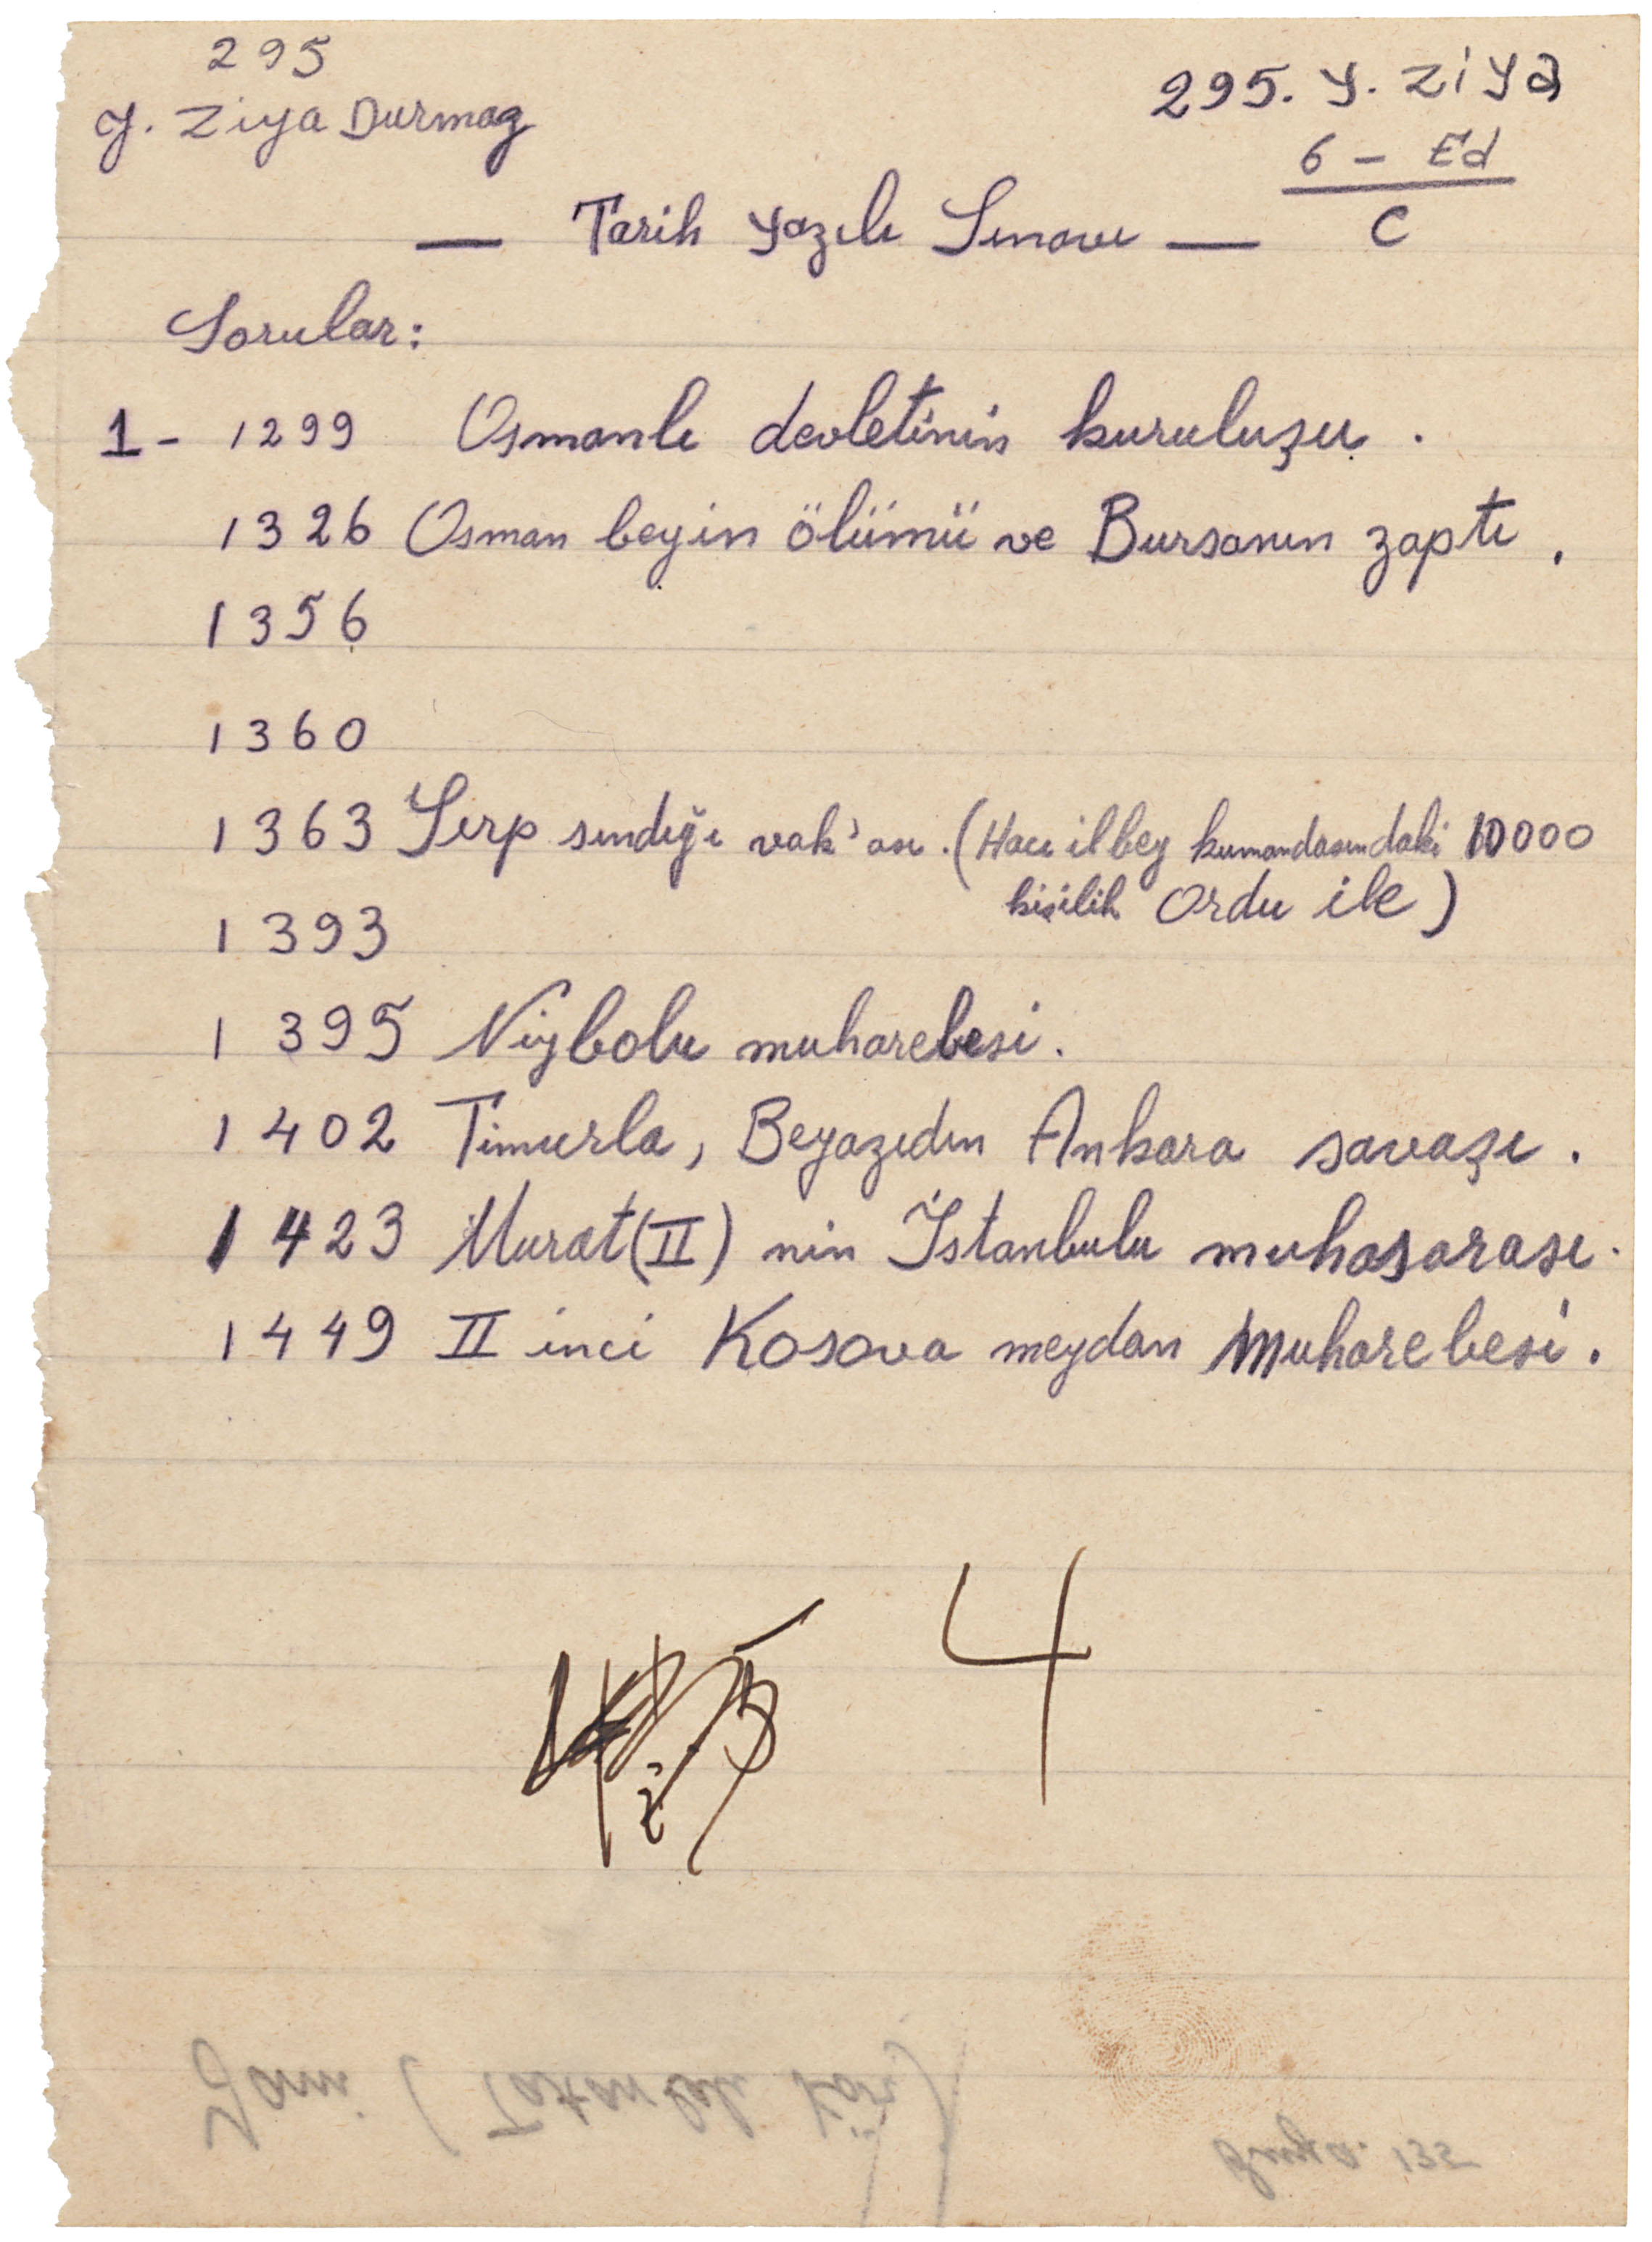 295
Y. Ziya Durmaz
295. Y. Ziya
6 - Ed
C
— Tarih yazılı Sınavı —
Sorular:
1- 1299 Osmanlı devletinin kuruluşu.
1326 Osman beyin ölümü ve Bursanın zaptı.
1356
1360
1363 Sırp sındığı vak'ası. (Hacı ilbey kumandasındaki 10000
kişilik Ordu ile)
1393
1395 Niybolu muharebesi.
1402 Timurla, Beyazıdın Ankara savaşı.
1423 Murat (II) nin İstanbulu muhasarası.
1449 II inci Kosova meydan Muharebesi.
4